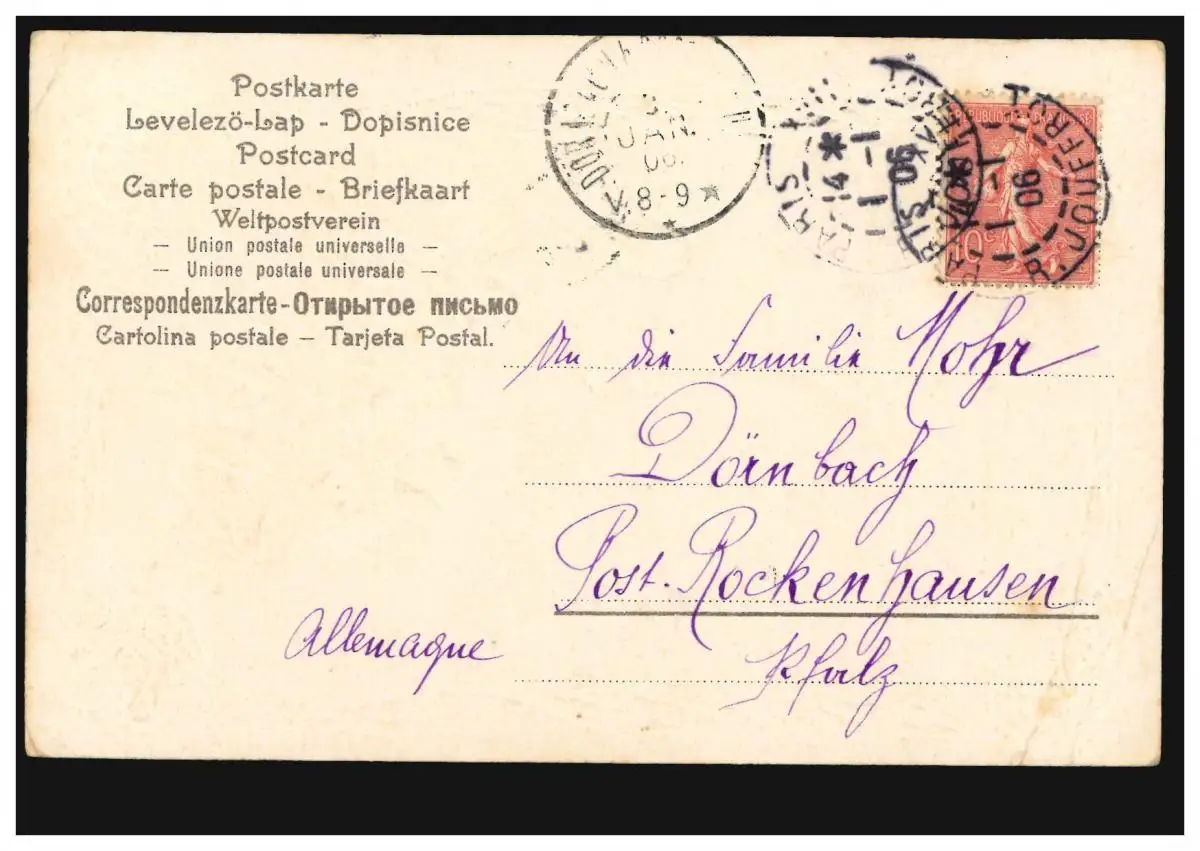 Postkarte
Levelezö-Lap - Dopisnice
Postcard
Carte postale - Briefkaart
Weltpostverein
— Union postale universelle —
— Unione postale universale —
Correspondenzkarte-Открытое письмо
Cartolina postale — Tarjeta Postal.
3
JAN.
06.
V. 8-9
PARIS
14
1-1
06
REPUBLIQUE FRANÇAISE
10c
1-1
06
R. JOUFFROY
An die Familie Mohr
Dörnbach
Post. Rockenhausen
Allemagne
Pfalz